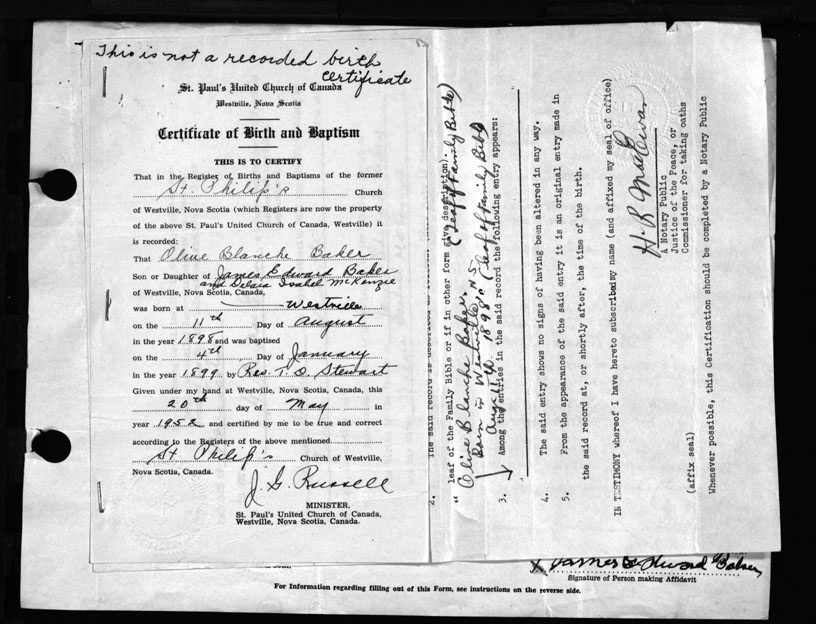 This is not a recorded birth
certificate
St. Paul's United Church of Canada
Westville, Nova Scotia
Certificate of Birth and Baptism
THIS IS TO CERTIFY
That in the Register of Births and Baptisms of the former
St. Philip's Church
of Westville, Nova Scotia (which Registers are now the property
of the above St. Paul's United Church of Canada, Westville) it
is recorded:
That Olive Blanche Baker
Son or Daughter of James Edward Baker
and Delaia Isabel McKenzie
of Westville, Nova Scotia, Canada,
was born at Westville
on the 11th Day of August
in the year 1898 and was baptised
on the 4th Day of January
in the year 1899 by Rev. T. D. Stewart
Given under my hand at Westville, Nova Scotia, Canada, this
20th day of May in
year 1952 and certified by me to be true and correct
according to the Registers of the above mentioned
St Philip's Church of Westville,
Nova Scotia, Canada.
J. G. Russell
MINISTER,
St. Paul's United Church of Canada,
Westville, Nova Scotia, Canada.
2. The said record is described as follows
" leaf of the Family Bible or if in other form give description).
(Leaf of Family Bible)
Olive Blanche Baker,
Born in Westville, N.S.
Aug. 11th 1898" (Leaf of Family Bible)
3. Among the entries in the said record the following entry appears:
4. The said entry shows no signs of having been altered in any way.
5. From the appearance of the said entry it is an original entry made in
the said record at, or shortly after, the time of the birth.
IN TESTIMONY whereof I have hereto subscribed my name (and affixed my seal of office)
H. R. MacEwan
A Notary Public
Justice of the Peace, or
Commissioner for taking oaths
(affix seal)
Whenever possible, this Certification should be completed by a Notary Public
X James Edward Baker
Signature of Person making Affidavit
For Information regarding filling out of this Form, see instructions on the reverse side.